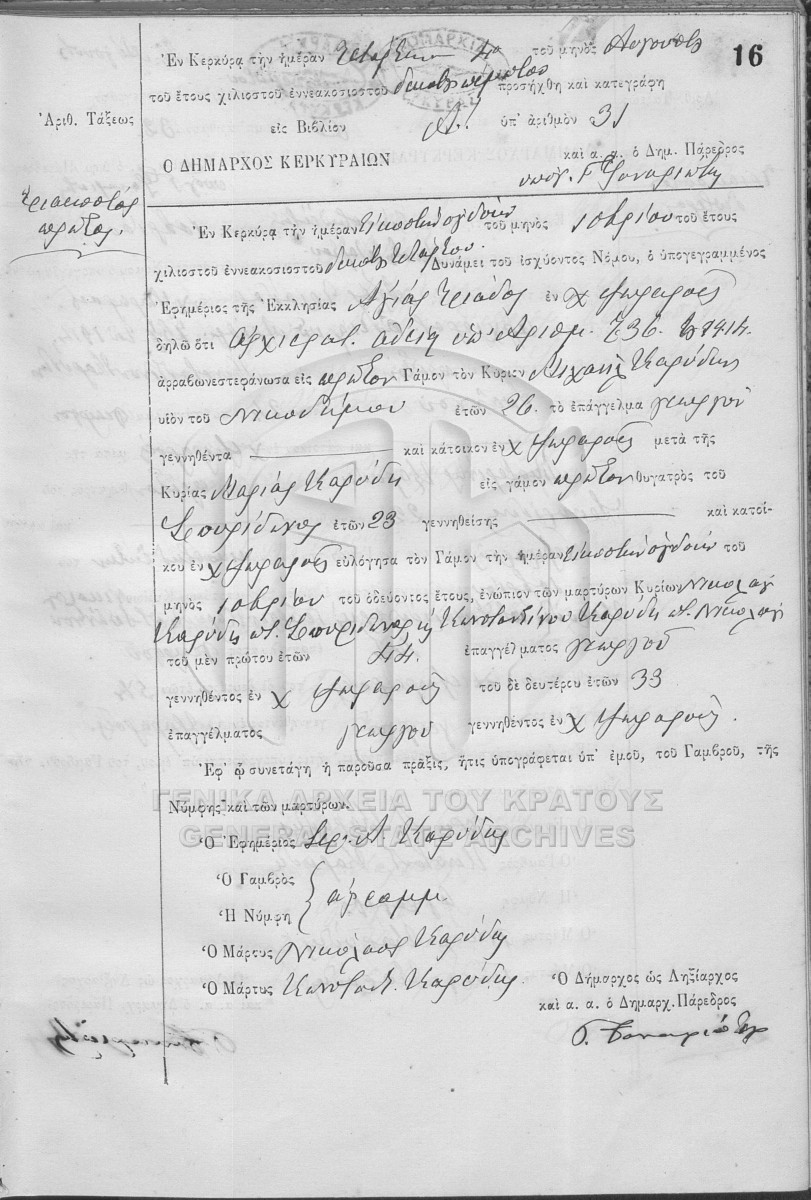 16
Ἐν Κερκύρᾳ τὴν ἡμέραν Τετάρτην 4ην τοῦ μηνὸς Αὐγούστου
τοῦ ἔτους χιλιοστοῦ ἐννεακοσιοστοῦ δεκάτου πέμπτου προσήχθη καὶ κατεγράφη
Ἀριθ. Τάξεως
εἰς Βιβλίον Α! ὑπ' ἀριθμὸν 31
Ο ΔΗΜΑΡΧΟΣ ΚΕΡΚΥΡΑΙΩΝ καὶ α. α. ὁ Δημ. Πάρεδρος
ὑπογ. Γ Φαναριώτης
Τριακοστὸς
πρῶτος.
Ἐν Κερκύρᾳ τὴν ἡμέραν εἰκοστὴν ὀγδόην τοῦ μηνὸς 10βρίου τοῦ ἔτους
χιλιοστοῦ ἐννεακοσιοστοῦ δεκάτου τετάρτου. Δυνάμει τοῦ ἰσχύοντος Νόμου, ὁ ὑπογεγραμμένος
Ἐφημέριος τῆς Ἐκκλησίας Ἁγίας Τριάδος ἐν χ Ψωραροὶς
δηλῶ ὅτι ἀρχιερατ. ἀδείᾳ ὑπ' ἀριθμ. 736 1914.
ἀρραβωνεστεφάνωσα εἰς πρῶτον Γάμον τὸν Κύριον Μιχαὴλ Καρύδην
υἱὸν τοῦ Νικοδήμου ἐτῶν 26. τὸ ἐπάγγελμα γεωργοῦ
γεννηθέντα καὶ κάτοικον ἐν χ Ψωραροὶς μετὰ τῆς
Κυρίας Μαρίας Καρύδη εἰς γάμον πρῶτον θυγατρὸς τοῦ
Σπυρίδωνος ἐτῶν 23 γεννηθείσης καὶ κατοί-
κου ἐν χ Ψωραροὶς εὐλόγησα τὸν Γάμον τὴν ἡμέραν εἰκοστὴν ὀγδόην τοῦ
μηνὸς 10βρίου τοῦ ὁδεύοντος ἔτους, ἐνώπιον τῶν μαρτύρων Κυρίων Νικολάου
Καρύδη ποτ. Σπυρίδωνος καὶ Κωνσταντίνου Καρύδη ποτ. Νικολάου
τοῦ μὲν πρώτου ἐτῶν 44. ἐπαγγέλματος γεωργοῦ
γεννηθέντος ἐν χ Ψωραροὶς τοῦ δὲ δευτέρου ἐτῶν 33
ἐπαγγέλματος γεωργοῦ γεννηθέντος ἐν χ Ψωραροὶς.
Ἐφ' ᾧ συνετάγη ἡ παροῦσα πρᾶξις, ἥτις ὑπογράφεται ὑπ' ἐμοῦ, τοῦ Γαμβροῦ, τῆς
Νύμφης καὶ τῶν μαρτύρων.
ΓΕΝΙΚΑ ΑΡΧΕΙΑ ΤΟΥ ΚΡΑΤΟΥΣ
GENERAL STATE ARCHIVES
Ὁ Ἐφημέριος Ἱερ. Α. Καρύδης
Ὁ Γαμβρὸς
ἀγράμμ.
Ἡ Νύμφη
Ὁ Μάρτυς Νικόλαος Καρύδης
Ὁ Μάρτυς Κωνσταντ. Καρύδης.
Ὁ Δήμαρχος ὡς Ληξίαρχος
καὶ α. α. ὁ Δημαρχ. Πάρεδρος
Γ. Φαναριώτης